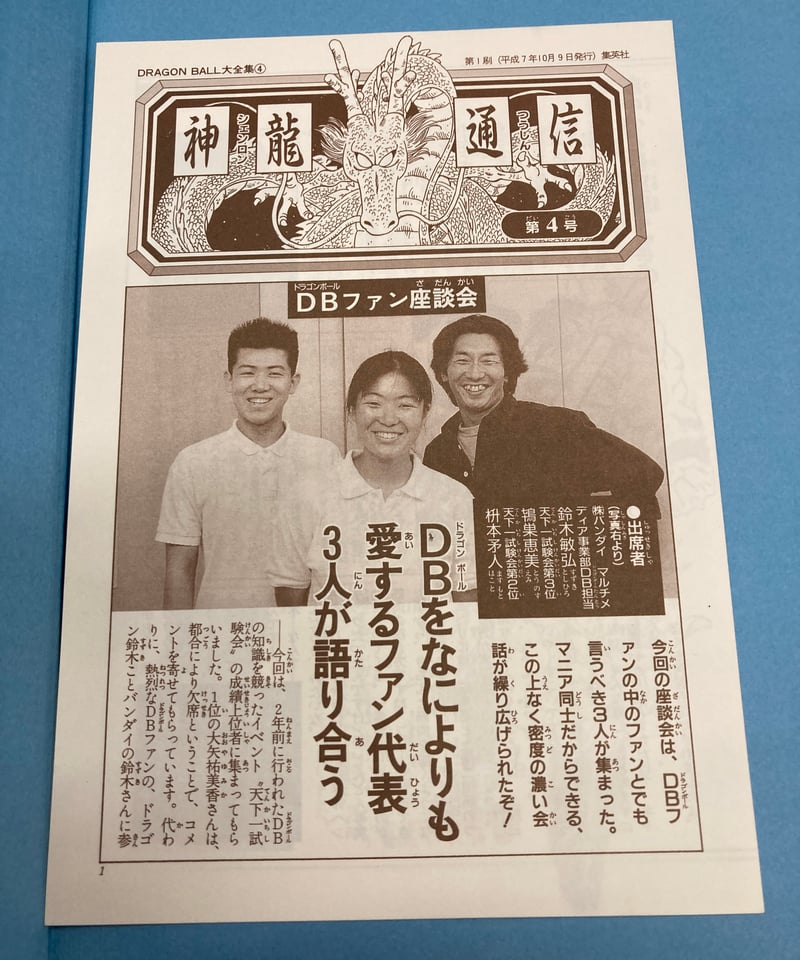 DRAGON BALL大全集④
第1刷（平成7年10月9日発行）集英社
神龍通信
シェンロン
つうしん
第4号
DBファン座談会
●出席者
（写真右より）
㈱バンダイ マルチメ
ディア事業部DB担当
鈴木敏弘
天下一試験会第3位
鴇巣恵美
天下一試験会第2位
枡本矛人
DBをなによりも
愛するファン代表
3人が語り合う
今回の座談会は、DBフ
ァンの中のファンとでも
言うべき3人が集まった。
マニア同士だからできる、
この上なく密度の濃い会
話が繰り広げられたぞ！
――今回は、2年前に行われたDB
の知識を競ったイベント〝天下一試
験会〟の成績上位者に集まってもら
いました。1位の大矢祐美香さんは、
都合により欠席ということで、コメ
ントを寄せてもらっています。代わ
りに、熱烈なDBファンの、ドラゴ
ン鈴木ことバンダイの鈴木さんに参
1